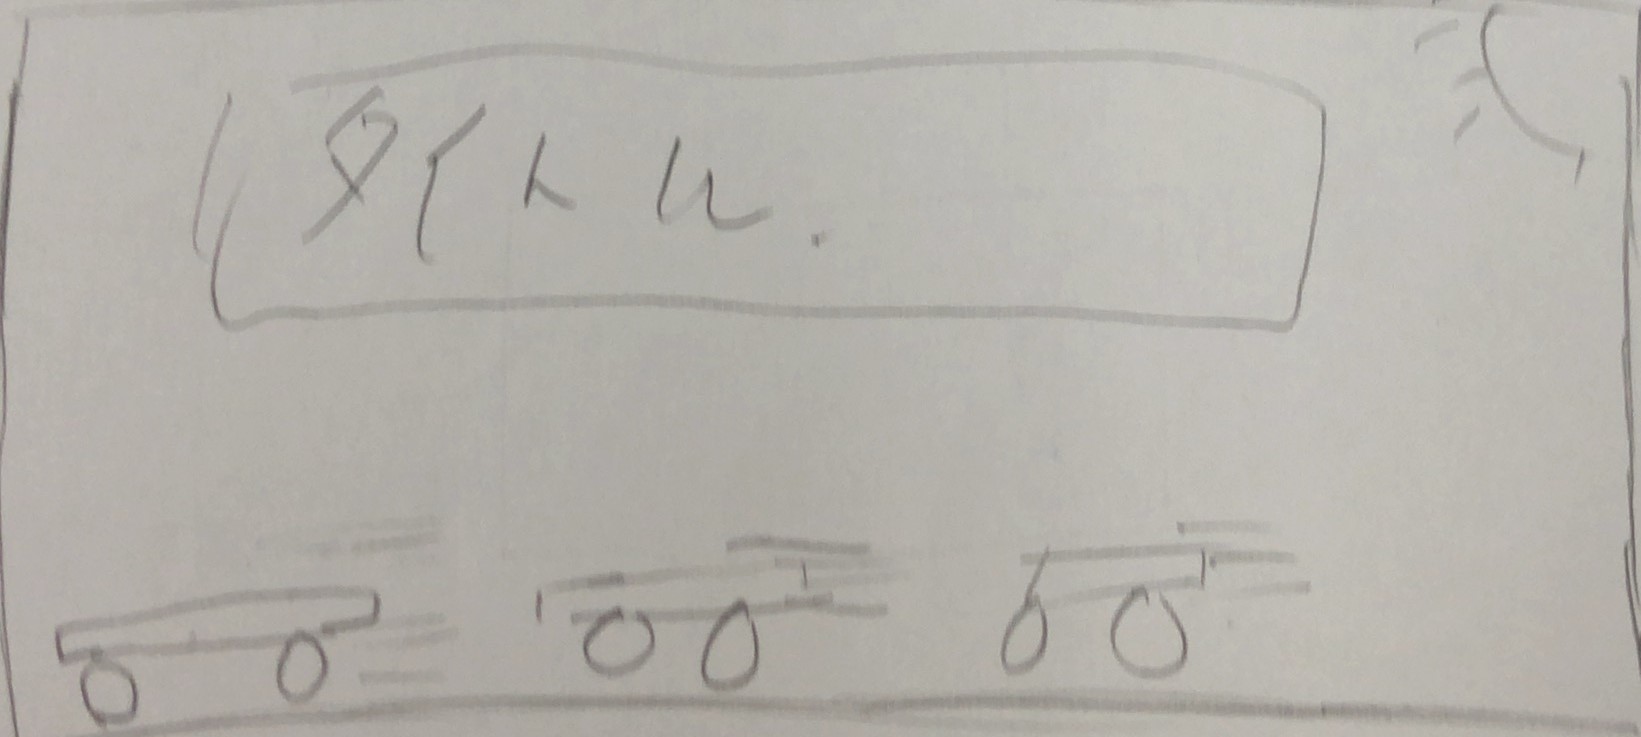 タイトル.